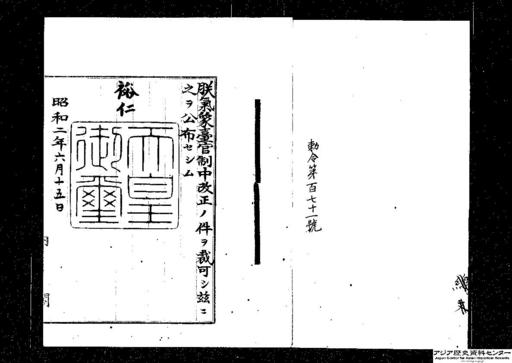 勅令第百七十一號
朕氣象臺官制中改正ノ件ヲ裁可シ玆ニ
之ヲ公布セシム
裕仁
天皇御璽
昭和二年六月十五日
内閣
アジア歴史資料センター
Japan Center for Asian Historical Records